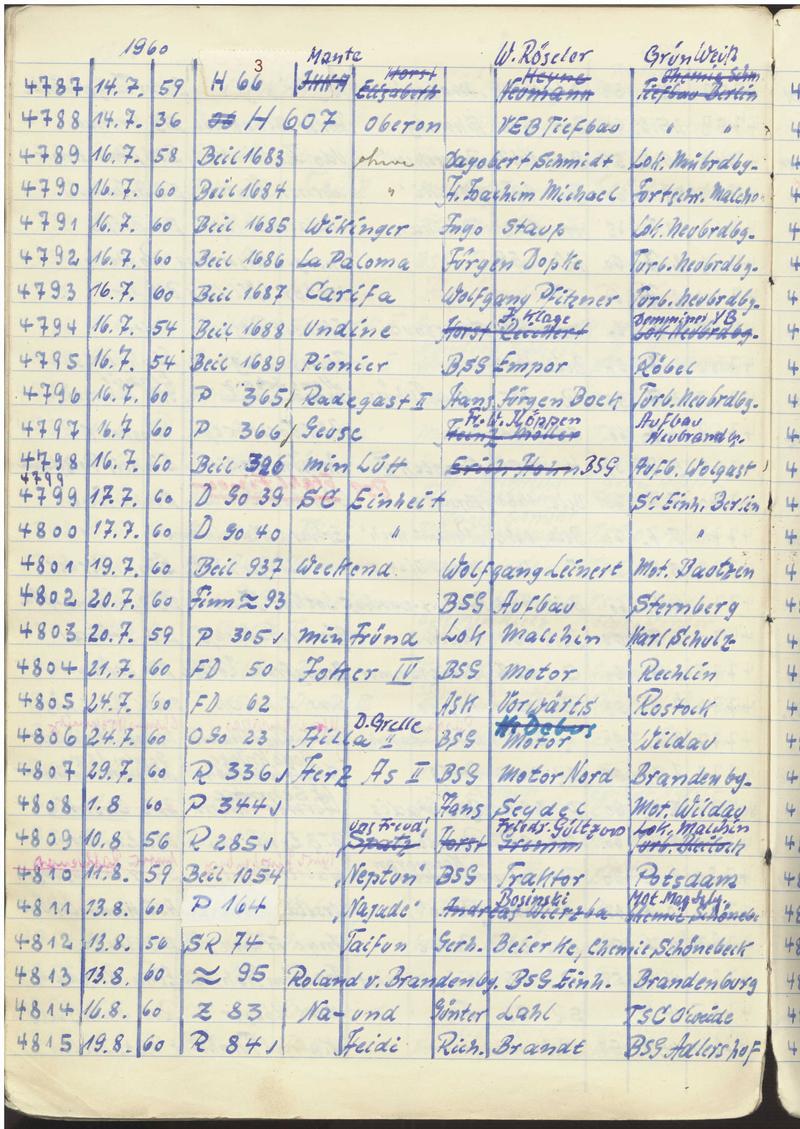 1960 3 Mante W. Röseler Grün Weiß
4787 14.7. 59 H 66 Horst Elisabeth Heyne Neumann Chemie Schm Tiefbau Berlin
4788 14.7. 36 H 607 Oberon VEB Tiefbau " "
4789 16.7. 58 Beil 1683 ohne Dagobert Schmidt Lok. Nubrdbg.
4790 16.7. 60 Beil 1684 " H. Joachim Michael Fortschr. Malcho
4791 16.7. 60 Beil 1685 Wikinger Ingo Staup Lok. Neubrdbg.
4792 16.7. 60 Beil 1686 La Paloma Jürgen Dopke Turb. Neubrdbg.
4793 16.7. 60 Beil 1687 Carifa Wolfgang Pfitzner Turb. Neubrdbg.
J. Klage Demminer VB
4794 16.7. 54 Beil 1688 Undine Horst Leichert Lok Neubrdbg.
4795 16.7. 54 Beil 1689 Pionier BSG Empor Röbel
4796 16.7. 60 P 365/ Radegast II Hans Jürgen Bock Turb. Neubrdbg.
Fr. W. Köppen Aufbau
4797 16.7 60 P 366/ Geuse Heinz Möller Neubrandbg.
4798 16.7. 60 Beil 326 min Lütt Erich Hohn BSG Aufb. Wolgast
4799
4799 17.7. 60 D 90 39 SC Einheit SC Einh. Berlin
4800 17.7. 60 D 90 40 " "
4801 19.7. 60 Beil 937 Weekend Wolfgang Leinert Mot. Bautzen
4802 20.7. 60 Finn ≈ 93 BSG Aufbau Sternberg
4803 20.7. 59 P 305 min Fründ Lok Malchin Karl Schulz
4804 21.7. 60 FD 50 Fokker IV BSG Motor Rechlin
4805 24.7. 60 FD 62 ASK Vorwärts Rostock
D. Grelle H. Debus
4806 24.7. 60 OSo 23 Hilla II BSG Motor Wildau
4807 29.7. 60 R 336 Herz As II BSG Motor Nord Brandenbg.
4808 1.8 60 P 344 Hans Seydel Mot. Wildau
uns Freud' Friedr. Gültzow Lok. Malchin
4809 10.8 56 R 285 Spatz Horst Trumm
4810 11.8. 59 Beil 1054 „Neptun" BSG Traktor Potsdam
Bosinski Mot. Magdbg.
4811 13.8. 60 P 164 „Najade" Andreas Wierzba Chemie Schönebe
4812 13.8. 56 SR 74 Taifun Gerh. Beierke, Chemie Schönebeck
4813 13.8. 60 ≈ 95 Roland v. Brandenbg. BSG Einh. Brandenburg
4814 16.8. 60 Z 83 Na-und Günter Lahl TSC Oweide
4815 19.8. 60 R 84 Heidi Rich. Brandt BSG Adlershof